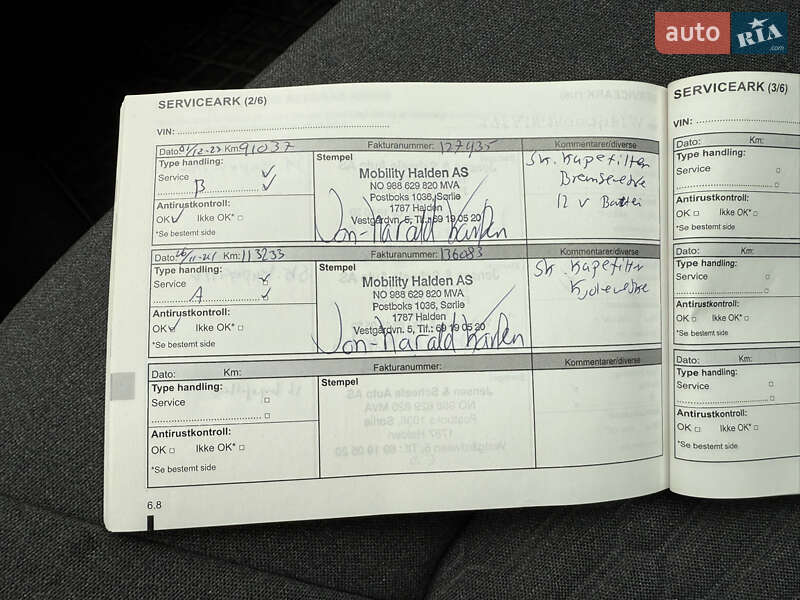 auto RIA .com
SERVICEARK (2/6)
VIN:
Dato: /12-22 Km: 91037 Fakturanummer: 127435 Kommentarer/diverse
Type handling:
Service ✓
B ✓
Antirustkontroll:
OK ✓ Ikke OK* □
*Se bestemt side
Stempel
Mobility Halden AS
NO 988 629 820 MVA
Postboks 1036, Sørlie
1787 Halden
Vestgårdvn. 5, Tlf.: 69 19 05 20
Jon-Harald Karlsen
Sk. Kupefilter
Bremsevæske
12 v Batteri
Dato: /11-24 Km: 113233 Fakturanummer: 136083 Kommentarer/diverse
Type handling:
Service ✓
A ✓
Antirustkontroll:
OK ✓ Ikke OK* □
*Se bestemt side
Stempel
Mobility Halden AS
NO 988 629 820 MVA
Postboks 1036, Sørlie
1787 Halden
Vestgårdvn. 5, Tlf.: 69 19 05 20
Jon-Harald Karlsen
Sk. Kupefilter
Kjølevæske
Dato: Km: Fakturanummer: Kommentarer/diverse
Type handling:
Service □
□
Antirustkontroll:
OK □ Ikke OK* □
*Se bestemt side
Stempel
6.8
SERVICEARK (3/6)
VIN:
Dato: Km:
Type handling:
Service □
□
Antirustkontroll:
OK □ Ikke OK* □
*Se bestemt side
Dato: Km:
Type handling:
Service □
□
Antirustkontroll:
OK □ Ikke OK* □
*Se bestemt side
Dato: Km:
Type handling:
Service □
□
Antirustkontroll:
OK □ Ikke OK* □
*Se bestemt side